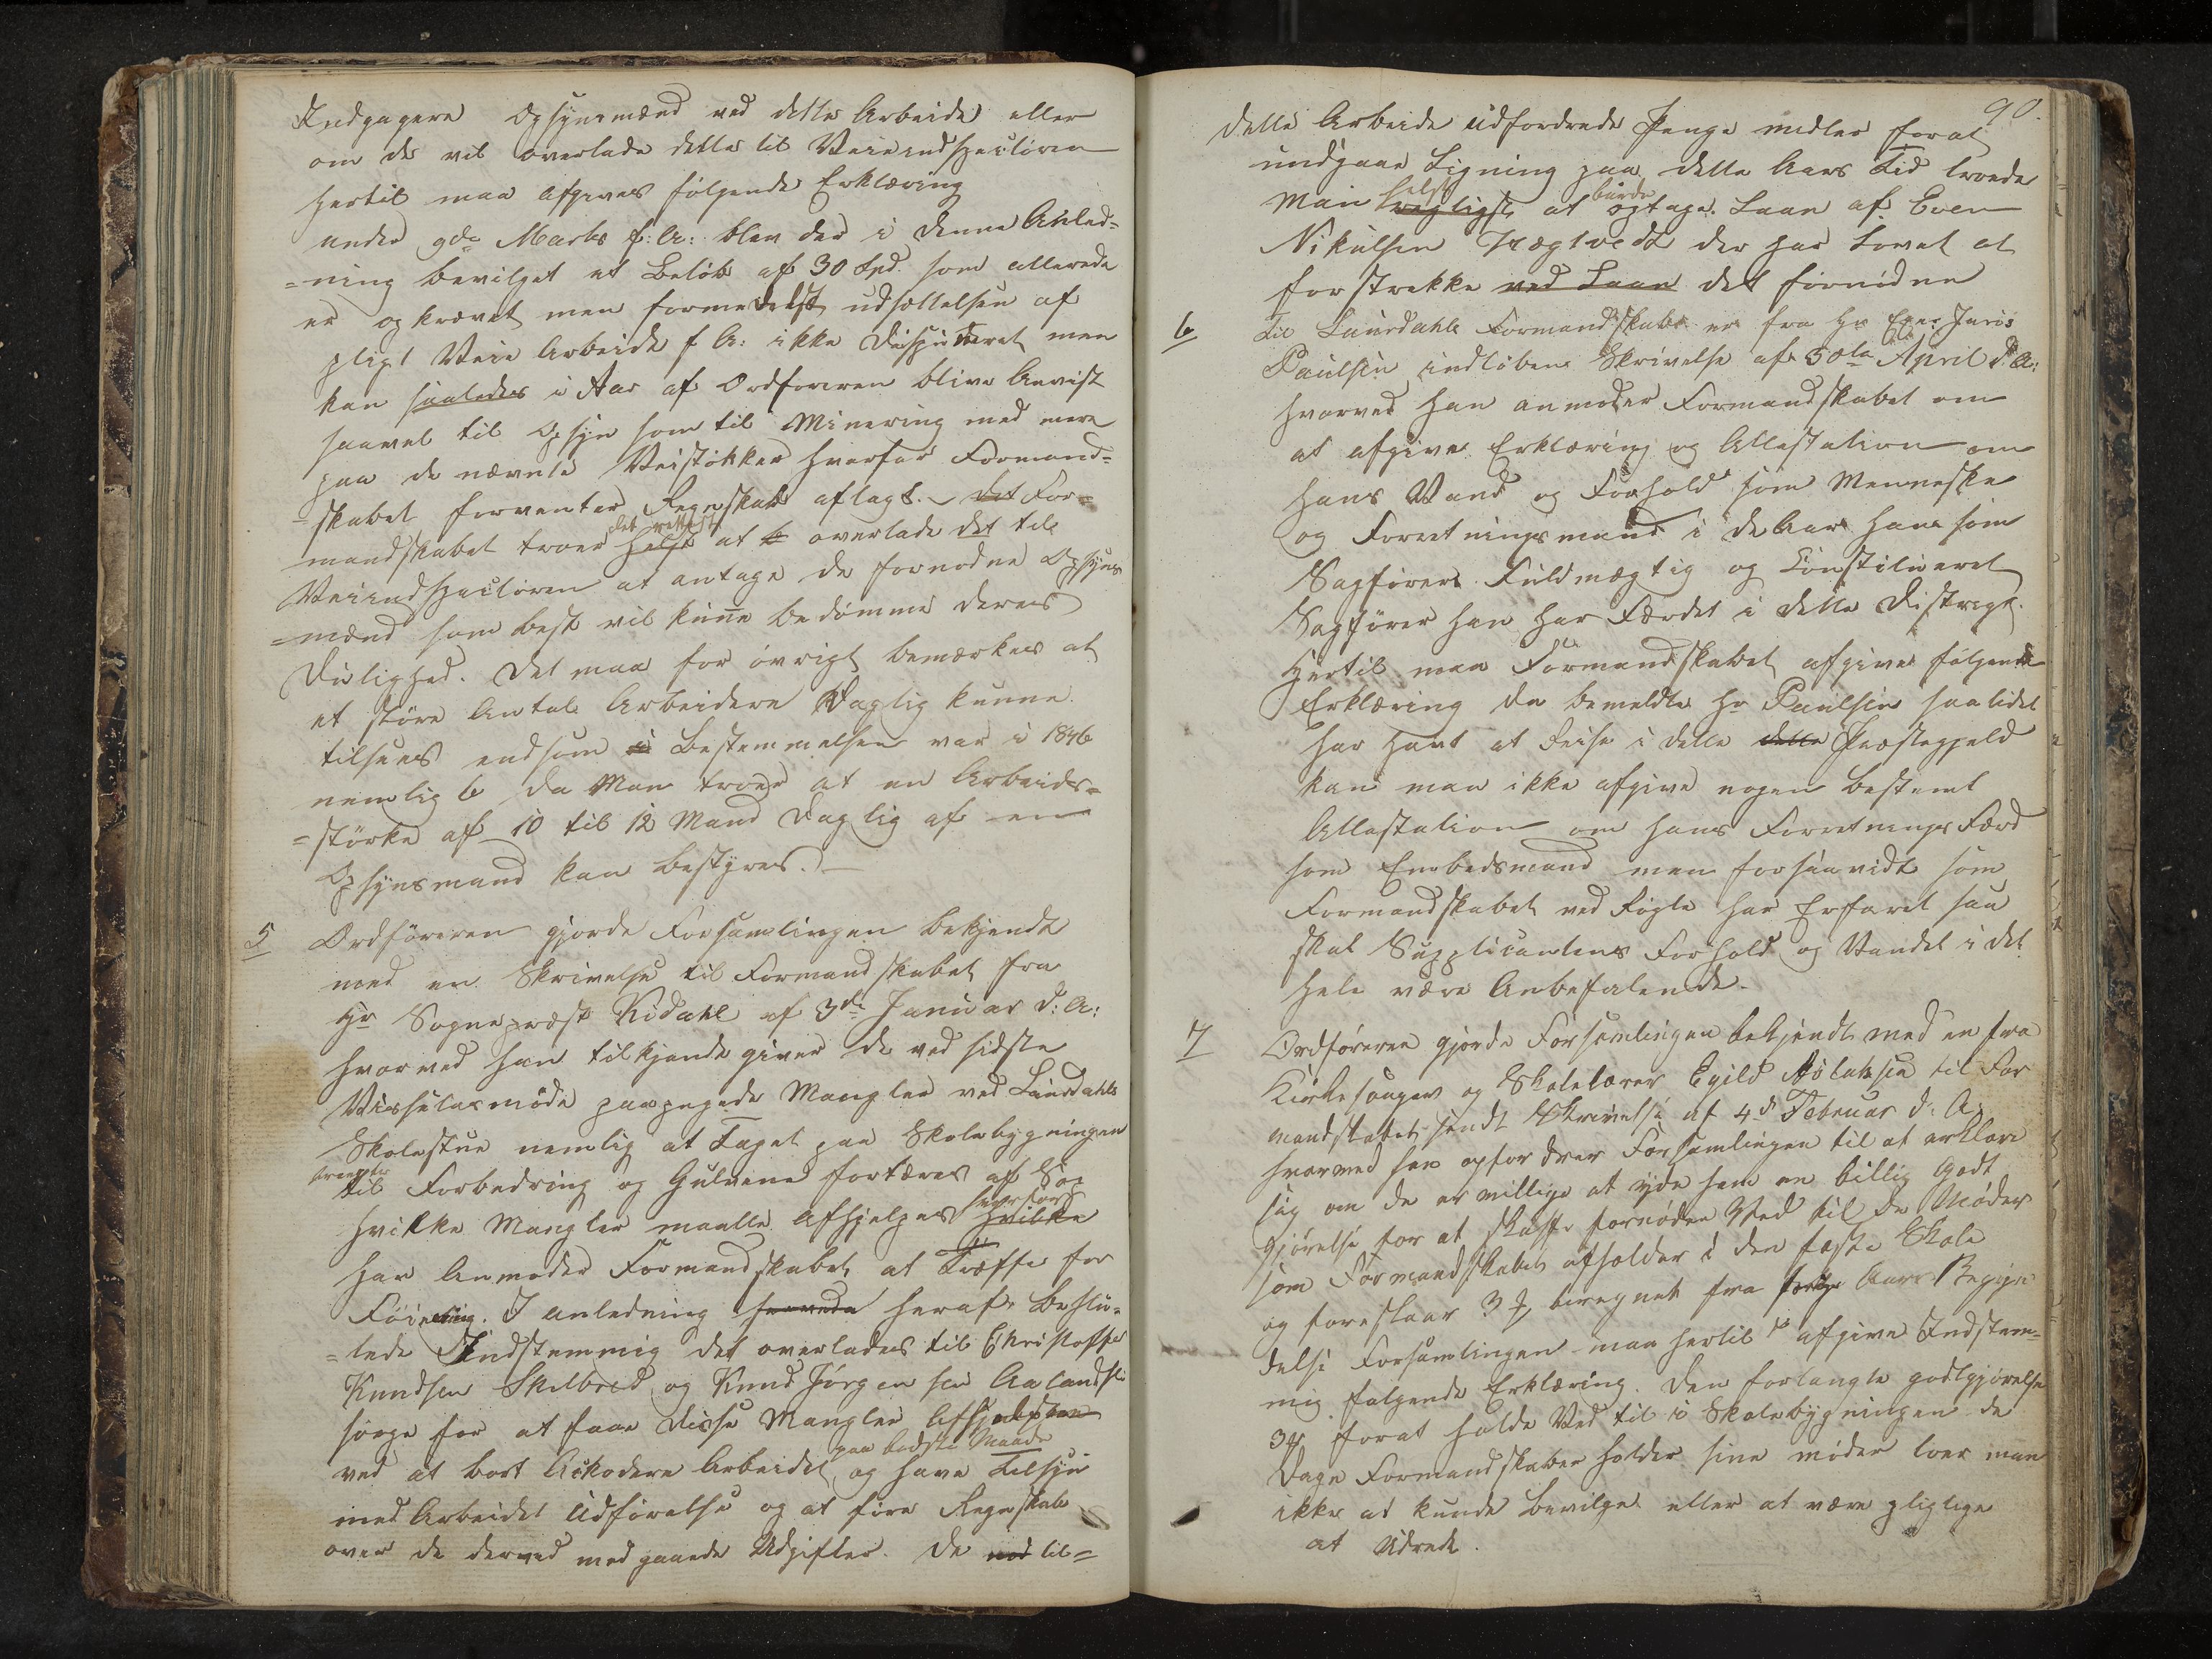 Indgagere Opsynsmænd ved dette Arbeide eller
om de vil overlade dette til Veieindspectøren
hertil maa afgives følgende Erklæring
under 9de Marts f: A: blev der i denne Anled=
=ning bevilget et Beløb af 30 Spd. som allerede
er opkrævet men formedelst udsættelsen af
pligt Veie Arbeide f A: ikke disponeret men
kan saaledes i Aar af Ordføreren blive Anvist
saavel til Opsyn som til Minering med mere
paa de nævnte Veistøkker hvorfor Formand=
=skabet forventer Regnskab aflagt. – det For=
mandskabet troer det rettest helst at overlade det til
Veieindspectøren at antage de fornødne Opsyns
=mænd som best vil kunne bedømme deres
Dulighed. Det maa for øvrigt bemærkes at
et større Antal Arbeidere Daglig kunne
tilsees end som i Bestemmelsen var i 1846
nemlig 6 da Man troer at en Arbeids=
=størke af 10 til 12 Mand Daglig af en
Opsynsmand kan bestyres. –
5 Ordføreren gjorde Forsamlingen bekjendt
med en Skrivelse til Formandskabet fra
Hr Sogneprest Kidahl af 3de Januar d: A:
hvorved han tilkjende giver de ved sidste
Visitasmøde paapegede Mangler ved Laurdahls
Skolestue nemlig at Taget paa Skolebygningen
trænger til Forbedring og Gulvene fortæres af Sop
hvilke Mangler maatte Afhjelpes hvorfor hvilke
har Anmoder Formandskabet at Træffe for
Føiening. I anledning heraf beslu=
=tede Indstemmig det overlades til Christoffer
Knudsen Skelbred og Knud Jørgensen Aalandsli
sørge for at faae disse Mangler Afhjelpen
ved at bort Ackodere Arbeidet paa bedste Maade og have Tilsyn
med Arbeidet Udførelse og at føre Regnskab
over de derved medgaaede Udgifter. De til=
90.
dette Arbeide udfordrede Penge midler forat
undgaae Ligning paa dette Aars Tid troede
Man helst at burde optage Laan af Even
Nikulsen Trægtvedt der har Lovet at
forstrekke ved Laan det fornødne
6 Til Laurdahls Formandskab er fra Hr Exam Juris
Paulsen indløben Skrivelse af 30te April d: A:
hvorved han anmoder Formandskabet om
at afgive Erklæring og Attestation om
hans Vand og Forhold som Menneske
og Forretningsmand i de Aar han som
Sagførers Fuldmægtig og Constitueret
Sagfører han har Færdet i dette Distrigt.
Hertil maa Formandskabet afgive følgende
Erklæring da bemeldte Hr Paulsen saalidet
har havt at Reise i dette dette Præstegjeld
kan man ikke afgive nogen bestemt
Attestation om hans Forretnings Færd
som Embedsmand men forsaavidt som
Formandskabet ved Rygte har Erfaret saa
skal Supplicantens Forhold og Vandel i det
hele være Anbefalende.
7 Ordføreren gjorde Forsamlingen bekjendt med en fra
Kirkesanger og Skolelærer Egild Aslaksen til For
mandskabet sendt Skrivelse af 4de Februar d: A:
hvormed han opfordrer Forsamlingen til at erklære
sig om de er villige at yde ham en billig Godt
gjørelse for at skaffe fornøden Ved til de Møder
som Formandskabet afholder i den faste Skole
og foreslaar 3 beregnet fra forige Aars Begyn
delse Forsamlingen maa hertil afgive Indstem=
mig følgende Erklæring. Den forlangte godtgjørelse
forat holde Ved til i Skolebygningen de
Dage Formandskabet holder sine møder troer man
ikke at kunde bevilge eller at være pligtige
at Udrede.